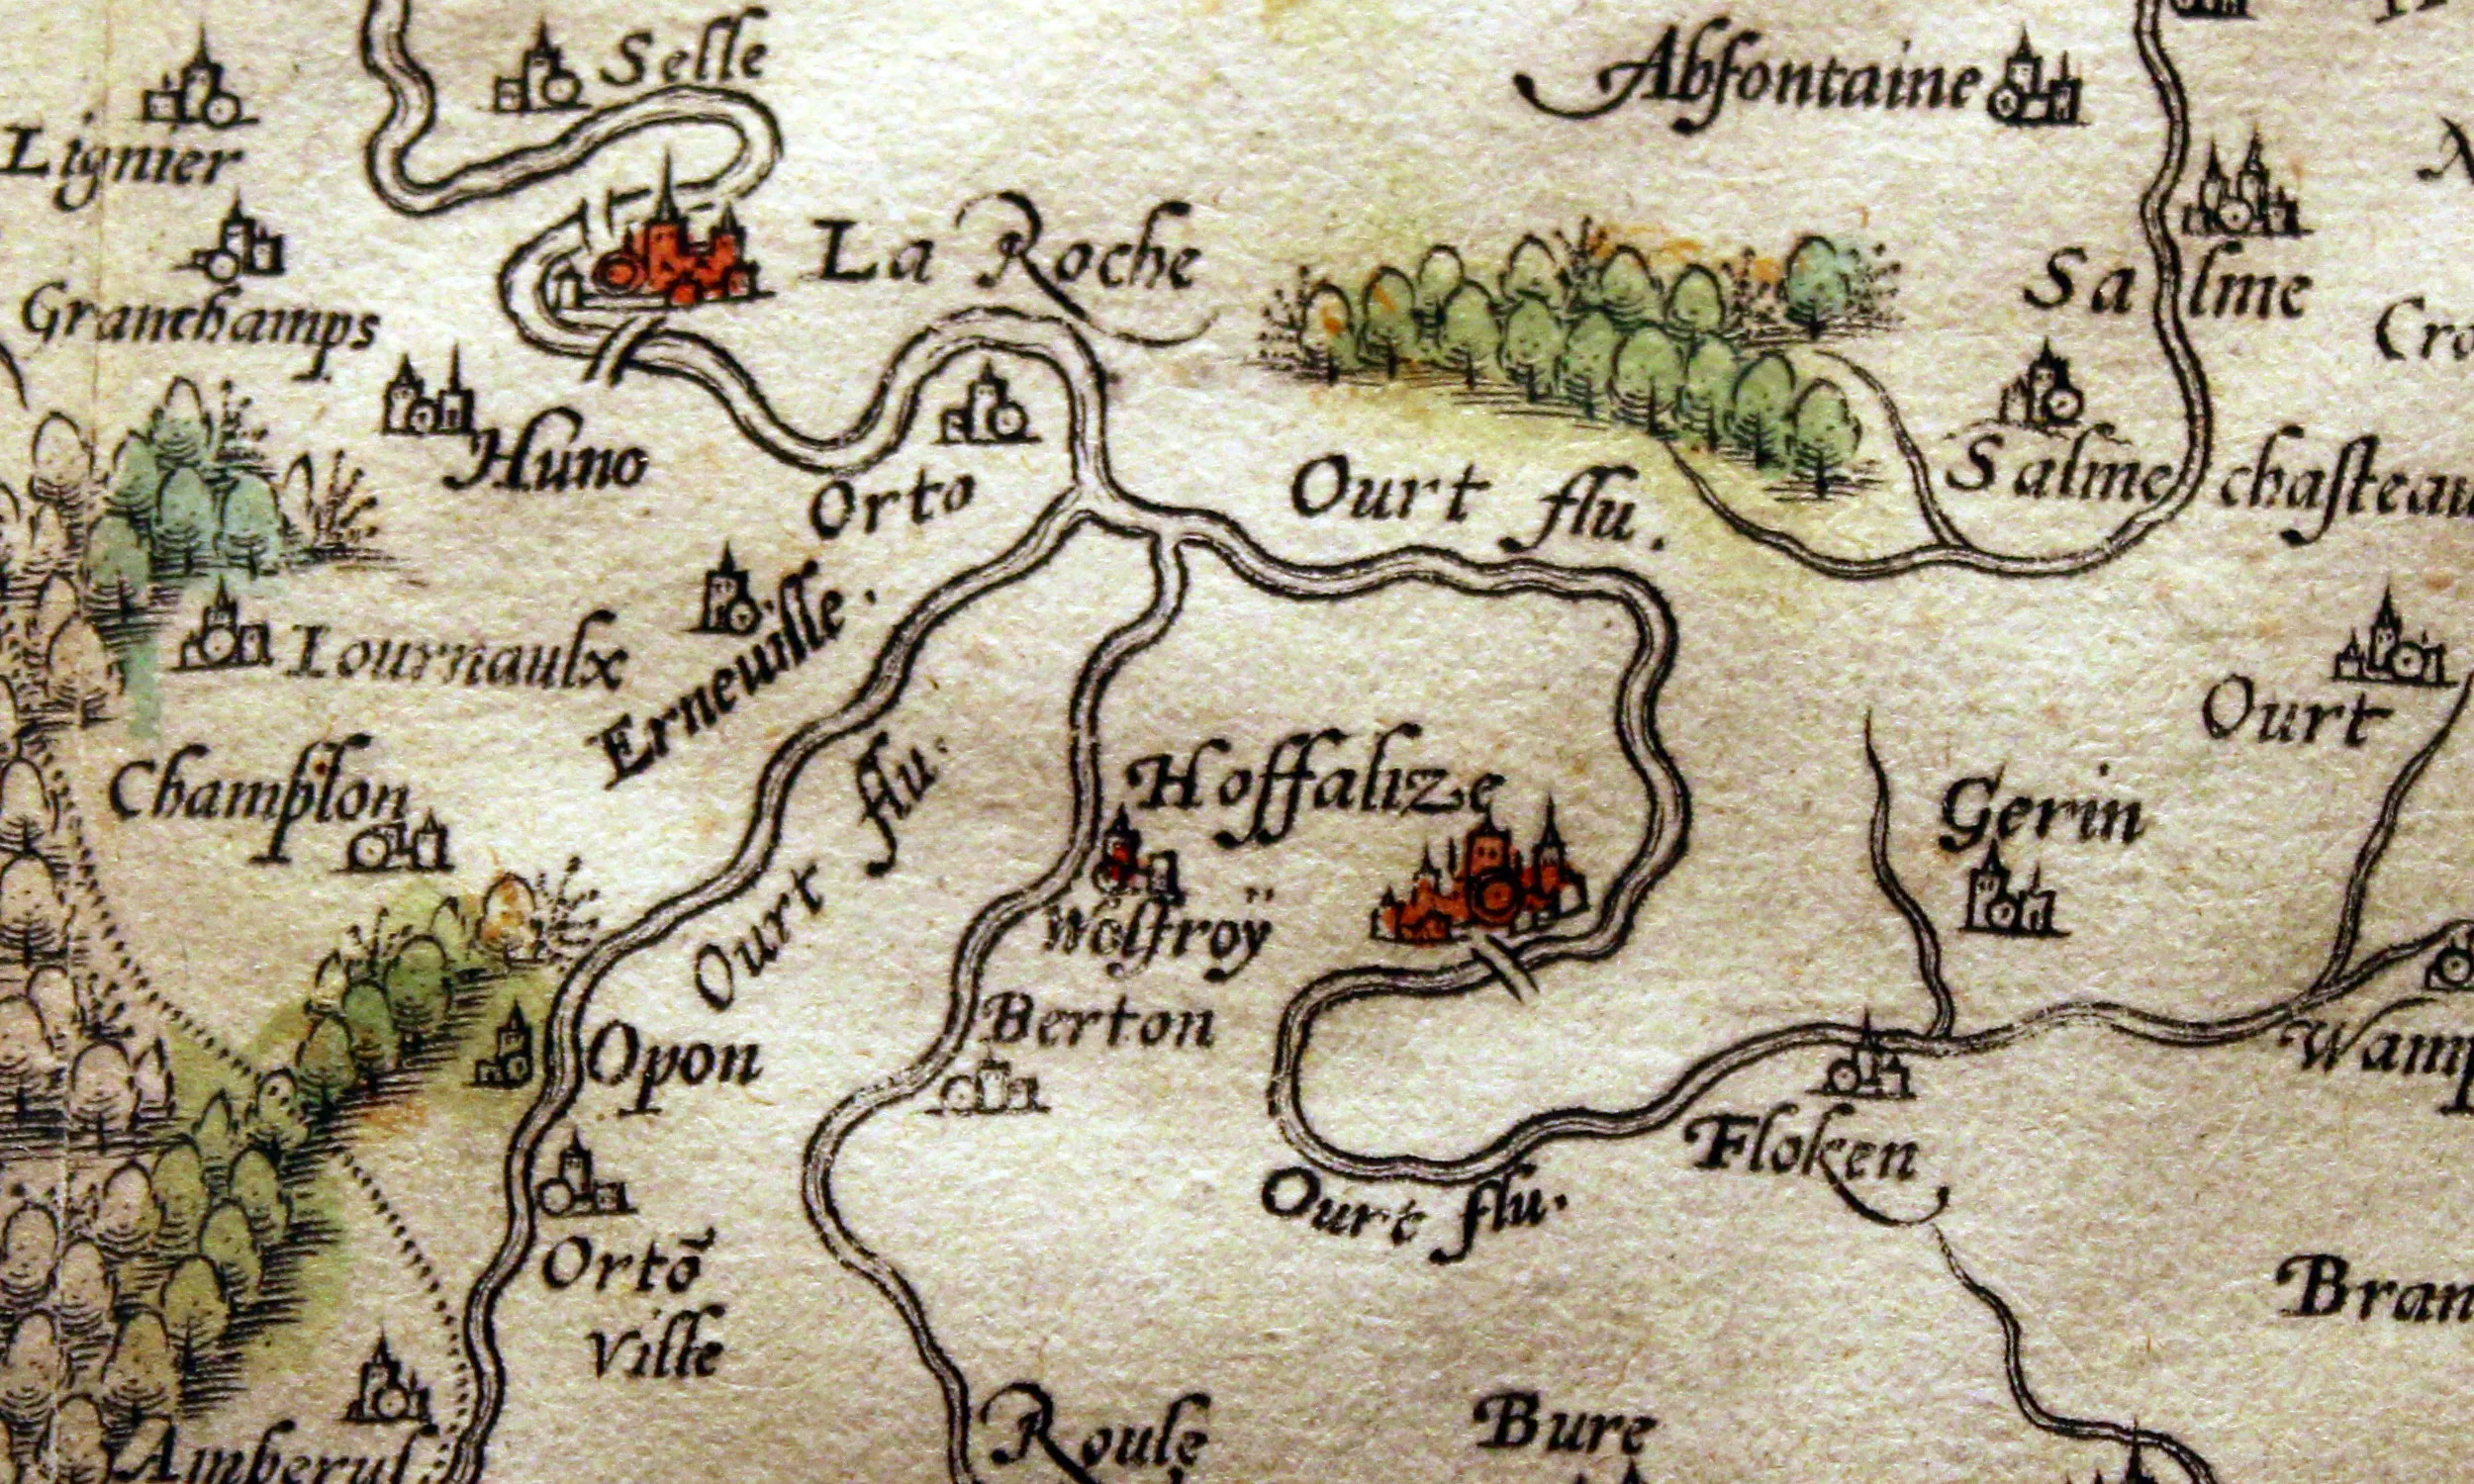 Selle
Abfontaine
Lignier
La Roche
Salme
Granchamps
Cro
Huno
Orto
Ourt flu.
Salme chasteau
Erneuille.
Lournaulx
Ourt
Hoffalize
Champlon
Gerin
Ourt flu.
Wolfroÿ
Berton
Opon
Wamp
Floken
Ourt flu.
Ortō
Ville
Bran
Roule
Bure
Amberul